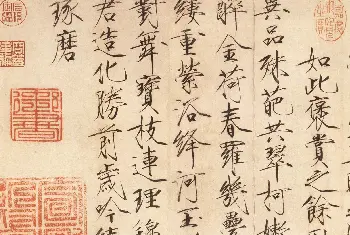 如此褒賞之餘
異品殊葩共翠柯嫩
醉金荷春羅幾疊
縷重縈浴絳河玉
對舞寶枝連理錦
君造化勝前歲吟
琢磨